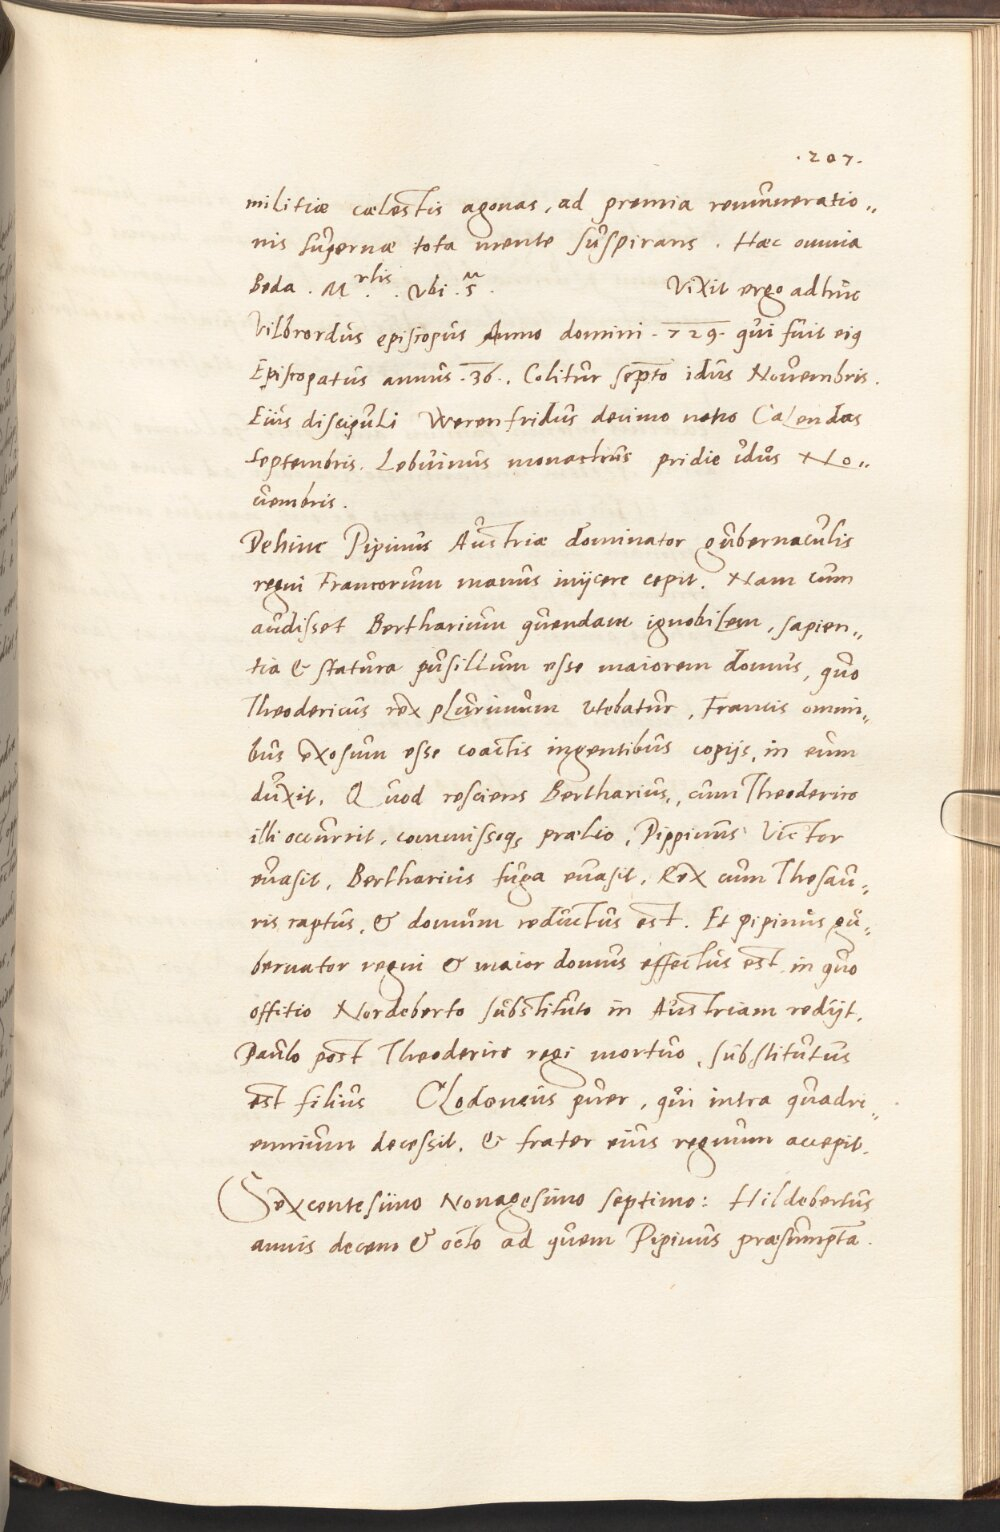 .207.
militiæ cælestis agonas, ad premia renumeratio„
nis supernæ tota mente suspirans. Hæc omnia
Beda. M.rlis. Vbi.s. Vixit ergo adhuc
Vilbrordus episcopus Anno domini .729. qui fuit eiꝰ
Episcopatus annus .36., Colitur septo idus Novembris.
Eius discipuli Werenfridus decimo nono Calendas
septembris. Lebuinus monachus pridie idus No„
uembris.
Dehinc Pipinus Austriæ dominator gubernaculis
regni Francorum manus inijcere cepit. Nam cum
audisset Bertharium quendam ignobilem, sapien„
tia & statura pusillum esse maiorem domus, quo
Theodericus rex plurimum vtebatur, Francis omni„
bus exosum esse coactis ingentibus copijs, in eum
duxit. Quod resciens Bertharius, cum Theoderico
illi occurrit, commissoq, prælio, Pippinus Victor
euasit, Bertharius fuga euasit, Rex cum Thesau„
ris raptus, & domum reductus est. Et pipinus gu„
bernator regni & maior domus effectus est, in quo
offitio Nordeberto substituto in Austriam redijt.
Paulo post Theoderico regi mortuo, substitutus
est filius Clodoneus puer, qui intra quadri„
ennium decessit, & frater eius regnum accepit.
Sexcentesimo Nonagesimo septimo: Hildebertus
annis decem & octo ad quem Pipinus præsumpta.